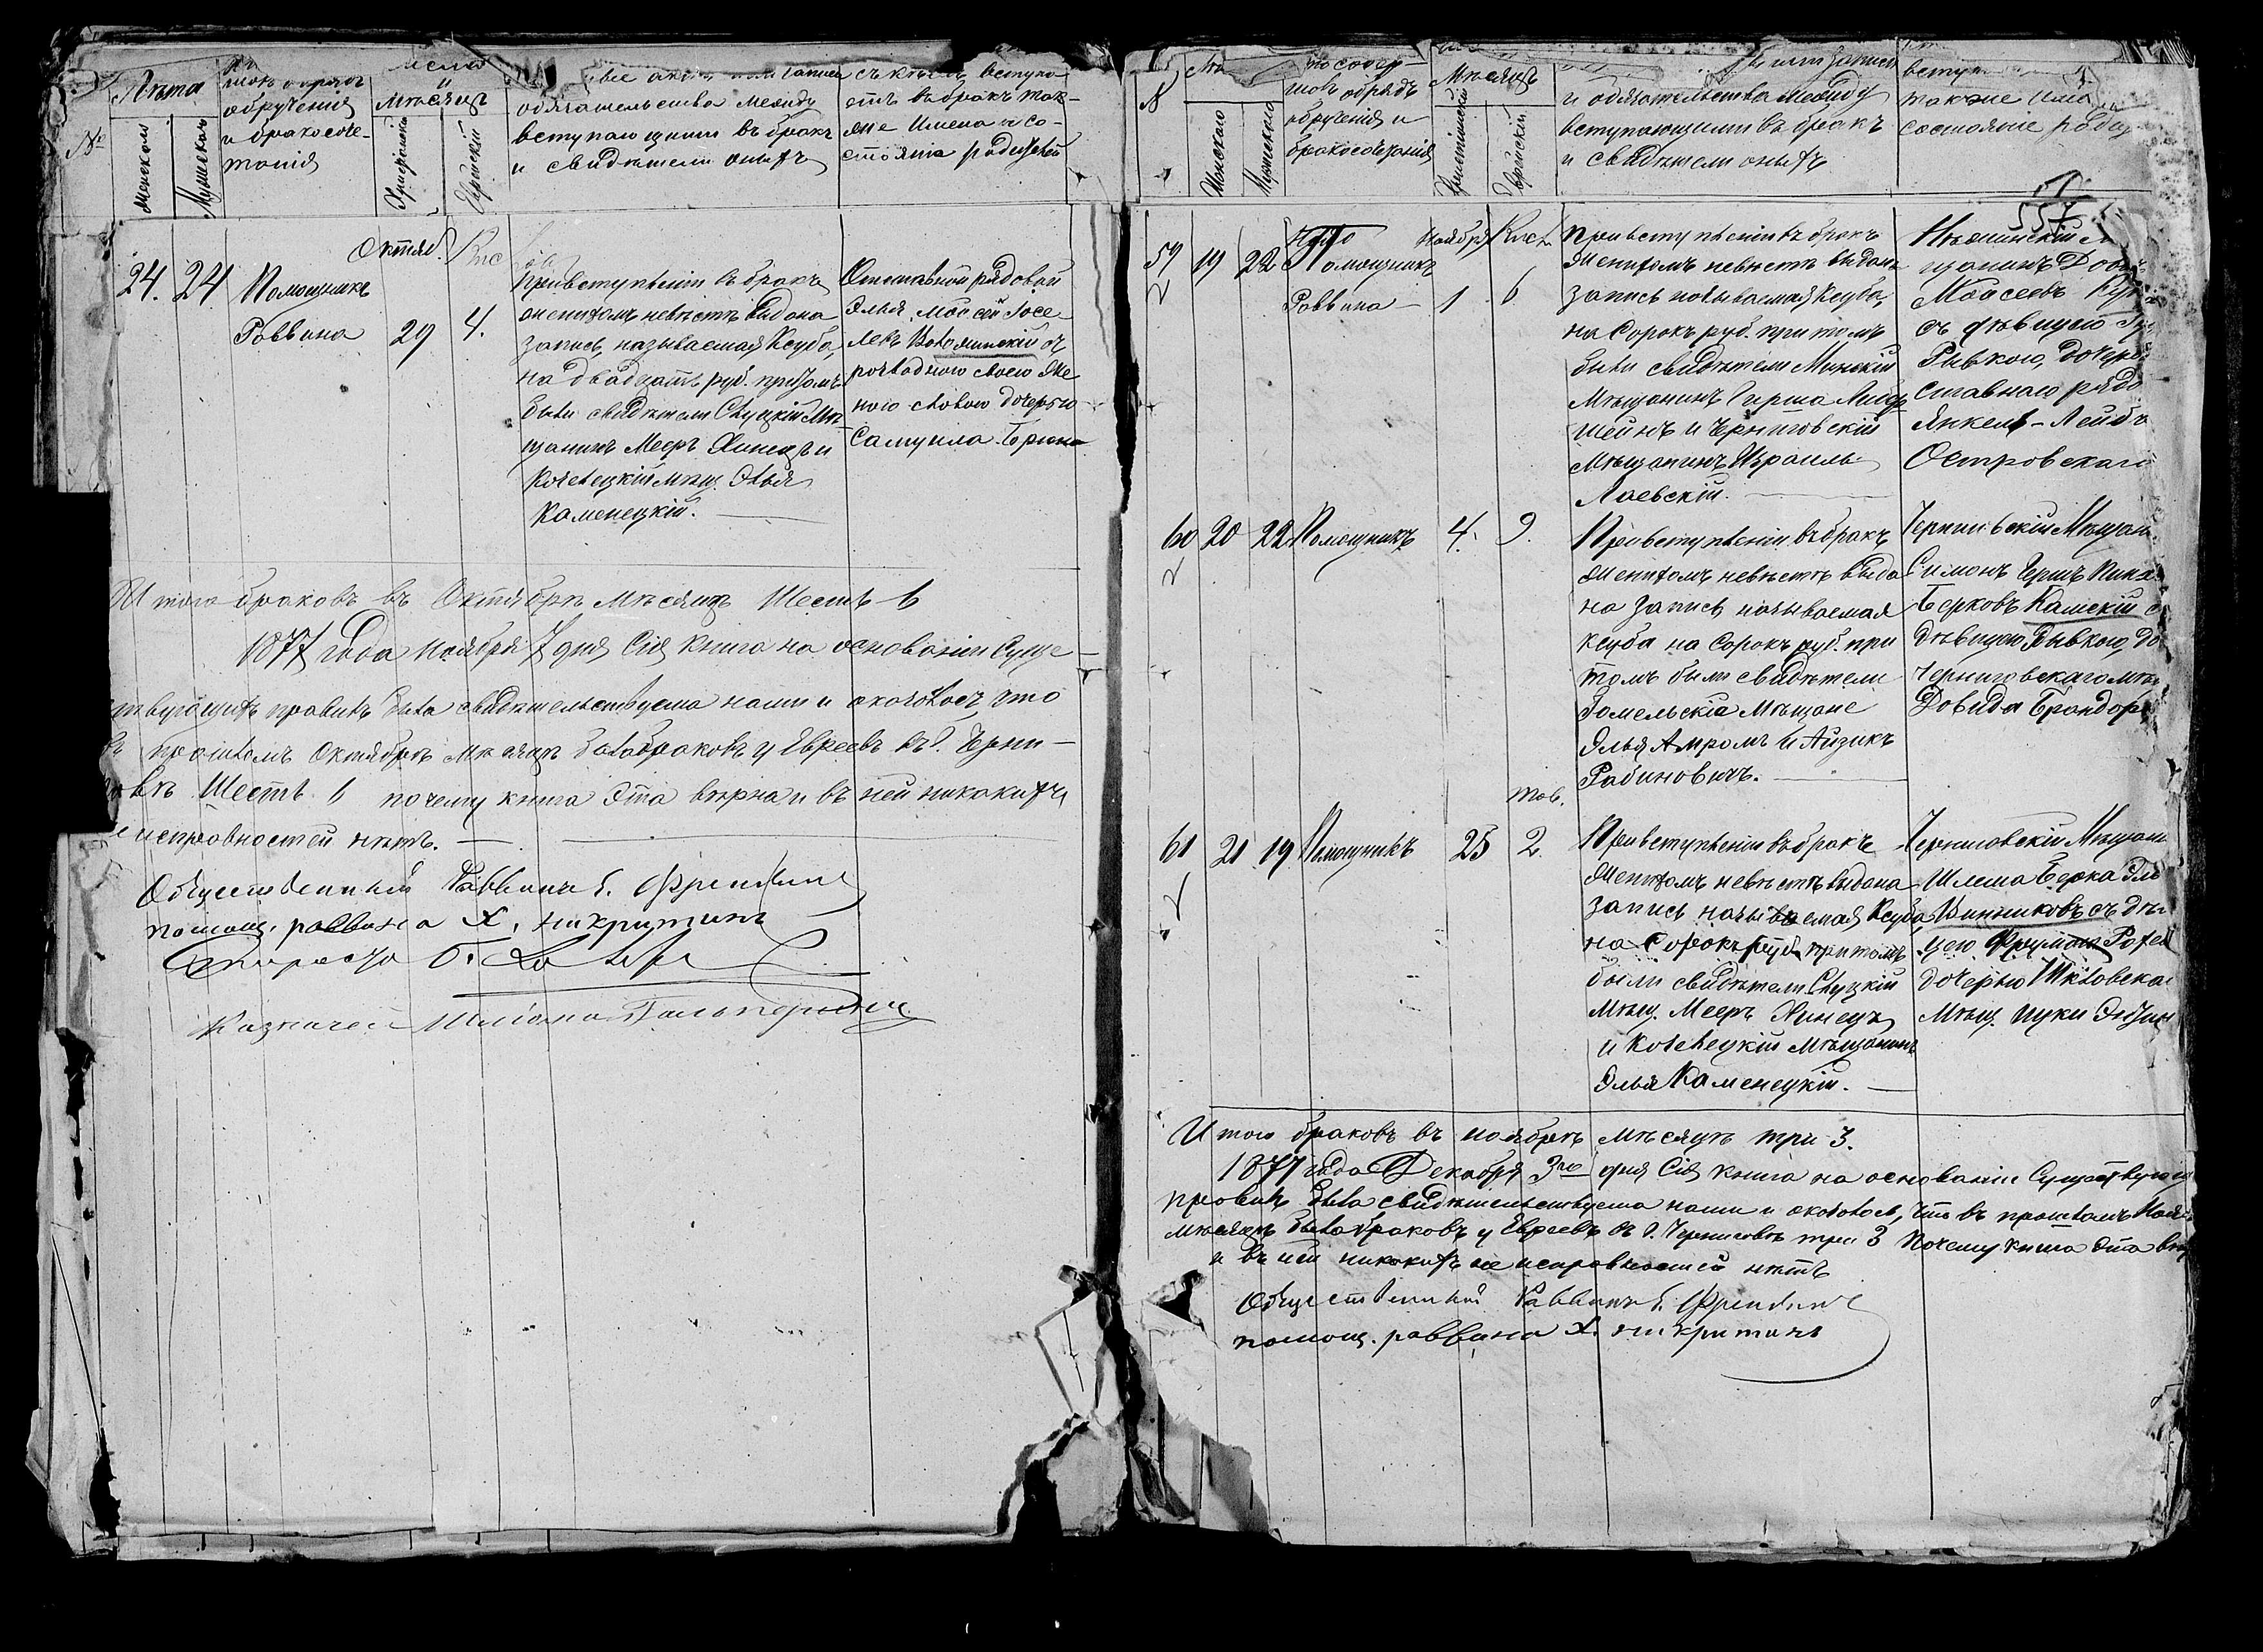 Лѣта
обрученія
и бракосоче-
танія
Мѣсяцъ
обязательства между
вступающими въ бракъ
и свидѣтели оныхъ
съ кѣмъ вступа-
етъ въ бракъ так-
же имена и со-
стояніе родителей
№
Женскаго
Мужескаго
Христіанскій
Еврейскій
Октяб.
24. 24 Помощникъ
Раввина 29 4.
При вступленіи въ бракъ
женихомъ невѣстѣ выдана
запись, называемая Ксуба,
на двадцать руб. притомъ
были свидѣтели Слуцкій Мѣ-
щанинъ Мееръ Хинецъ и
мѣщ. Элья
Каменецкій.
Отставной рядовой
Элья Мовсей Іосе-
съ
разводною своею же-
ною дочерью
Самуила
Итого браковъ въ Октябрѣ мѣсяцѣ Шесть 6
1877 года Ноября 7 дня Сія книга на основаніи Суще-
ствующихъ правилъ была свидѣтельствуема нами и оказалось, что
въ прошломъ Октябрѣ мѣсяцѣ было браковъ у Евреевъ въ г. Черни-
говѣ Шесть 6 почему книга эта вѣрна и въ ней никакихъ
неисправностей нѣтъ.
Общественный Раввинъ
помощ. раввина Х. Никритинъ
Староста Б.
Казначей Шліома Гальперинъ
№
обрядъ
обрученія и
бракосочетанія
Мѣсяцъ
и обязательства между
вступающими въ бракъ
и свидѣтели оныхъ
также имена
состояніе роди
Женскаго
Мужескаго
Христіанскій
Еврейскій
557
Ноября Кисл.
59 19 22 Помощникъ
Раввина 1 6
При вступленіи въ бракъ
женихомъ невѣстѣ выдана
запись называемая Ксуба,
на Сорокъ руб. притомъ
были свидѣтели Минскій
Мѣщанинъ Гирша
Шейнъ и Черниговскій
Мѣщанинъ Израиль
Лаевскій.
щанинъ
Мовсеевъ
съ дѣвицею
Рывкою, дочерью
ставнаго рядо
Янкель-Лейбы
Островскаго
60 20 22 Помощникъ 4. 9.
При вступленіи въ бракъ
женихомъ невѣстѣ выда-
на запись называемая
ксуба на Сорокъ руб. при
томъ были свидѣтели
Гомельскіе Мѣщане
Элья Амромъ и Айзикъ
Рабиновичъ.
Черниговскій Мѣщан
Симонъ Герш
Берковъ Камскій с
дѣвицею Рывкою, до
Черниговскаго мѣщ
Довида
тов.
61 21 19 Помощникъ 25 2.
При вступленіи въ бракъ
женихомъ невѣстѣ выдана
запись называемая Ксуба,
на Сорокъ руб. притомъ
были свидѣтели Слуцкій
Мѣщ. Мееръ Хинецъ
и Мѣщанинъ
Элья Каменецкій.
Черниговскій Мѣщан
Шлема Берка
Винниковъ съ дѣви
цею
дочерью Шкловска
Мѣщ.
Итого браковъ въ Ноябрѣ мѣсяцѣ три 3.
1877 года Декабря 3го дня Сія книга на основаніи Существующ
правилъ была свидѣтельствуема нами и оказалось, что въ прошломъ Нояб
мѣсяцѣ было браковъ у Евреевъ въ г. Черниговѣ три 3 Почему книга эта вѣр
и въ ней никакихъ неисправностей нѣтъ
Общественный Раввинъ
помощ. раввина Х. Никритинъ